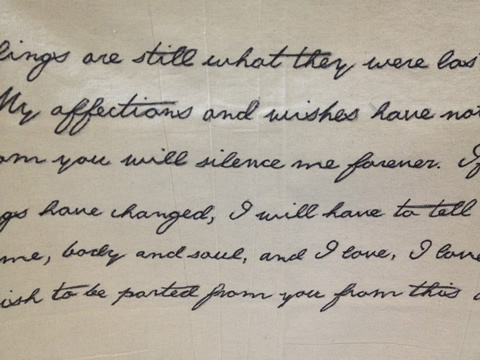 lings are still what they were las
My affections and wishes have not
om you will silence me forever. If
gs have changed, I will have to tell
me, body and soul, and I love, I love
ish to be parted from you from this